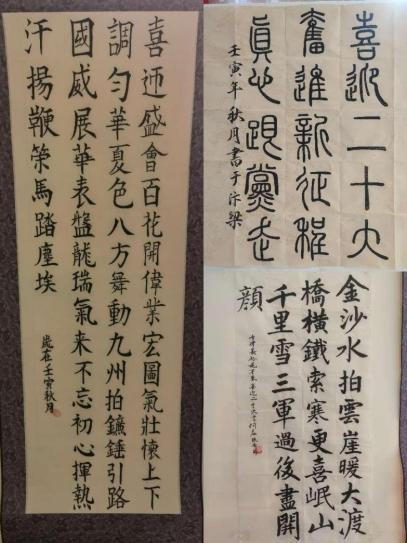 喜迎盛會百花開偉業宏圖氣壯懷上下
調勻華夏色八方舞動九州拍鑣錘引路
國威展華表盤龍瑞氣来不忘初心揮熱
汗揚鞭策馬踏塵埃
歲在壬寅秋月
喜迎二十大
奮進新征程
真心跟黨走
壬寅年秋月書于汴梁
金沙水拍雲崖暖大渡
橋橫鐵索寒更喜岷山
千里雪三軍過後盡開
顏